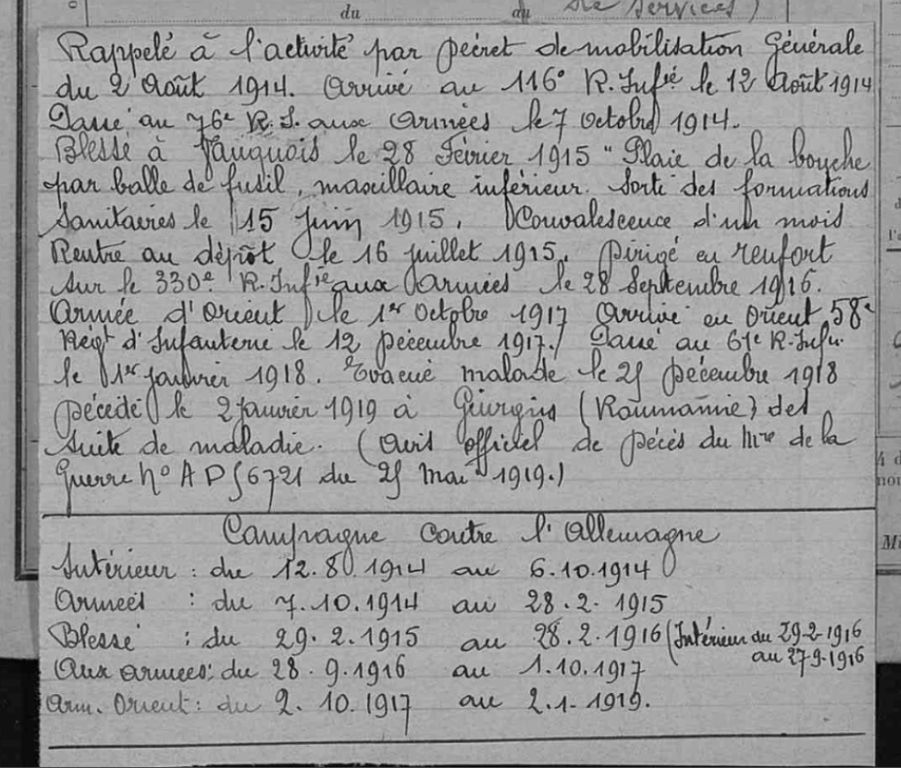 du au de services)
Rappelé à l'activité par Décret de mobilisation Générale
du 2 Août 1914. Arrivé au 116e R. Infie le 12 Août 1914
Passé au 76e R.I. aux Armées le 7 Octobre 1914.
Blessé à Vauquois le 28 Février 1915 " Plaie de la bouche
par balle de fusil, maxillaire inférieur. Sorti des formations
Sanitaires le 15 Juin 1915. Convalescence d'un mois
Rentré au dépôt le 16 juillet 1915. Dirigé en renfort
sur le 330e R. Infie aux Armées le 28 Septembre 1916.
Armée d'Orient le 1er Octobre 1917 Arrivé en Orient 58e
Régt d'Infanterie le 12 Décembre 1917. Passé au 61e R. Infie
le 1er janvier 1918. Evacué malade le 25 Décembre 1918
Décédé le 2 janvier 1919 à Giurgiu (Roumanie) des
suite de maladie. (Avis officiel de Décès du Mre de la
Guerre No A D 6721 du 25 Mai 1919.)
Campagne contre l'Allemagne
Intérieur : du 12.8.1914 au 6.10.1914
Armées : du 7.10.1914 au 28.2.1915
Blessé : du 29.2.1915 au 28.2.1916 (Intérieur du 29-2-1916
au 27-9-1916
Aux armées: du 28.9.1916 au 1.10.1917
Arm. Orient: du 2.10.1917 au 2.1.1919.